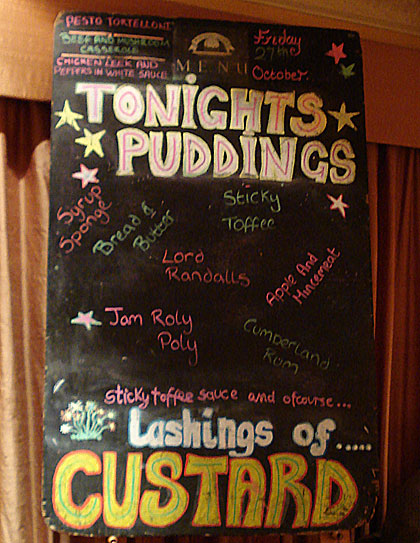 PESTO TORTELLONI
BEEF AND MUSHROOM
CASSEROLE
CHICKEN LEEK AND
PEPPERS IN WHITE SAUCE
MENU
Friday
27th
October.
TONIGHTS
PUDDINGS
Syrup
Sponge
Bread &
Butter
Sticky
Toffee
Lord
Randalls
Apple And
Mincemeat
Jam Roly
Poly
Cumberland
Rum
Sticky toffee sauce and ofcourse...
Lashings of.....
CUSTARD